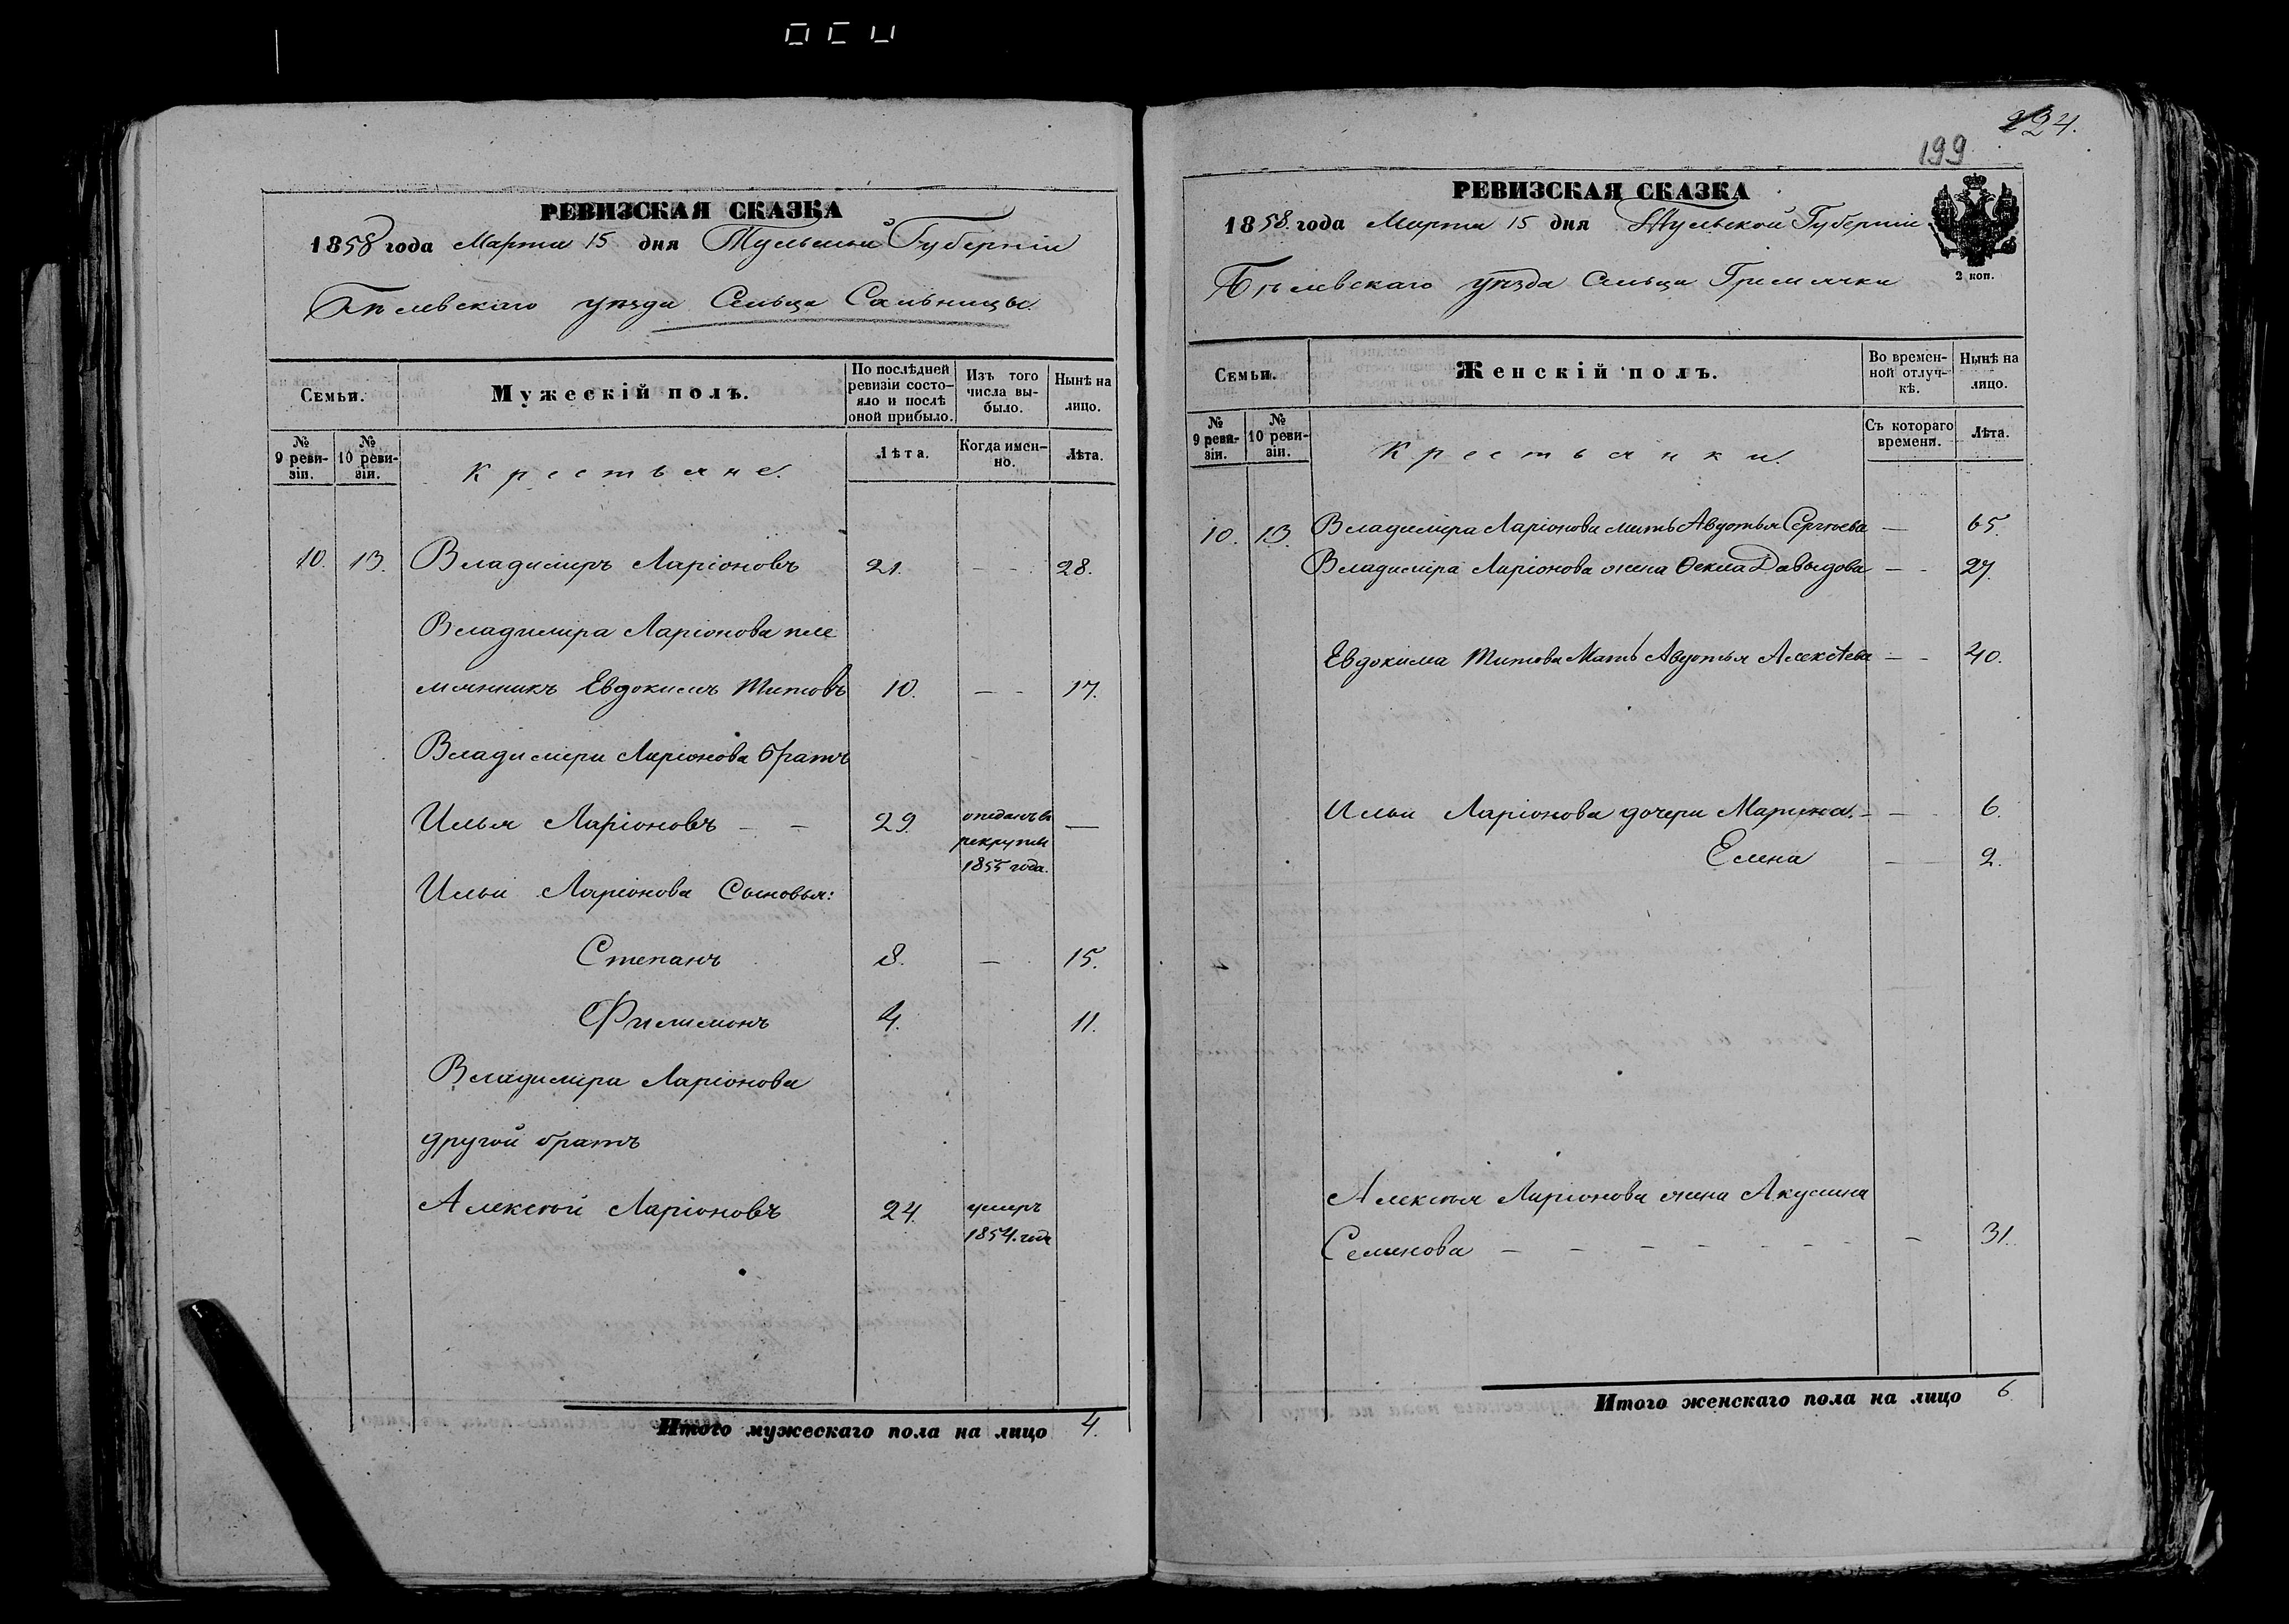 РЕВИЗСКАЯ СКАЗКА
1858 года Марта 15 дня Тульской Губерніи
Бѣлевскаго уѣзда Сельца Сальницы.
Семьи.
Мужескій полъ.
По послѣдней ревизіи состояло и послѣ оной прибыло.
Изъ того числа выбыло.
Нынѣ на лицо.
№ 9 ревизіи.
№ 10 ревизіи.
Крестьяне.
Лѣта.
Когда именно.
Лѣта.
10. 13. Владимиръ Ларіоновъ 21. — — 28.
Владимира Ларіонова пле
мянникъ Евдокимъ Титовъ 10. — — 17.
Владимира Ларіонова братъ
Илья Ларіоновъ — — 29. отданъ въ —
рекруты
1855 года.
Ильи Ларіонова Сыновья:
Степанъ 8. — 15.
Филимонъ 4. 11.
Владимира Ларіонова
другой братъ
Алексѣй Ларіоновъ 24. умеръ
1854. года
Итого мужескаго пола на лицо 4.
224.
199
РЕВИЗСКАЯ СКАЗКА
1858. года Марта 15 дня Тульской Губерніи
Бѣлевскаго уѣзда Сельца Гремячки
2 коп.
Семьи.
Женскій полъ.
Во временной отлучкѣ.
Нынѣ на лицо.
№ 9 ревизіи.
№ 10 ревизіи.
Крестьянки.
Съ котораго времени.
Лѣта.
10. 13. Владиміра Ларіонова мать Авдотья Сергѣева — 65.
Владиміра Ларіонова жена Ѳекла Давыдова — — 27.
Евдокима Титова Мать Авдотья Алексѣева — — 40.
Ильи Ларіонова дочери Марина. — — 6.
Елена — 2.
Алексѣя Ларіонова жена Акулина
Семенова — — — — — — — 31.
Итого женскаго пола на лицо 6.